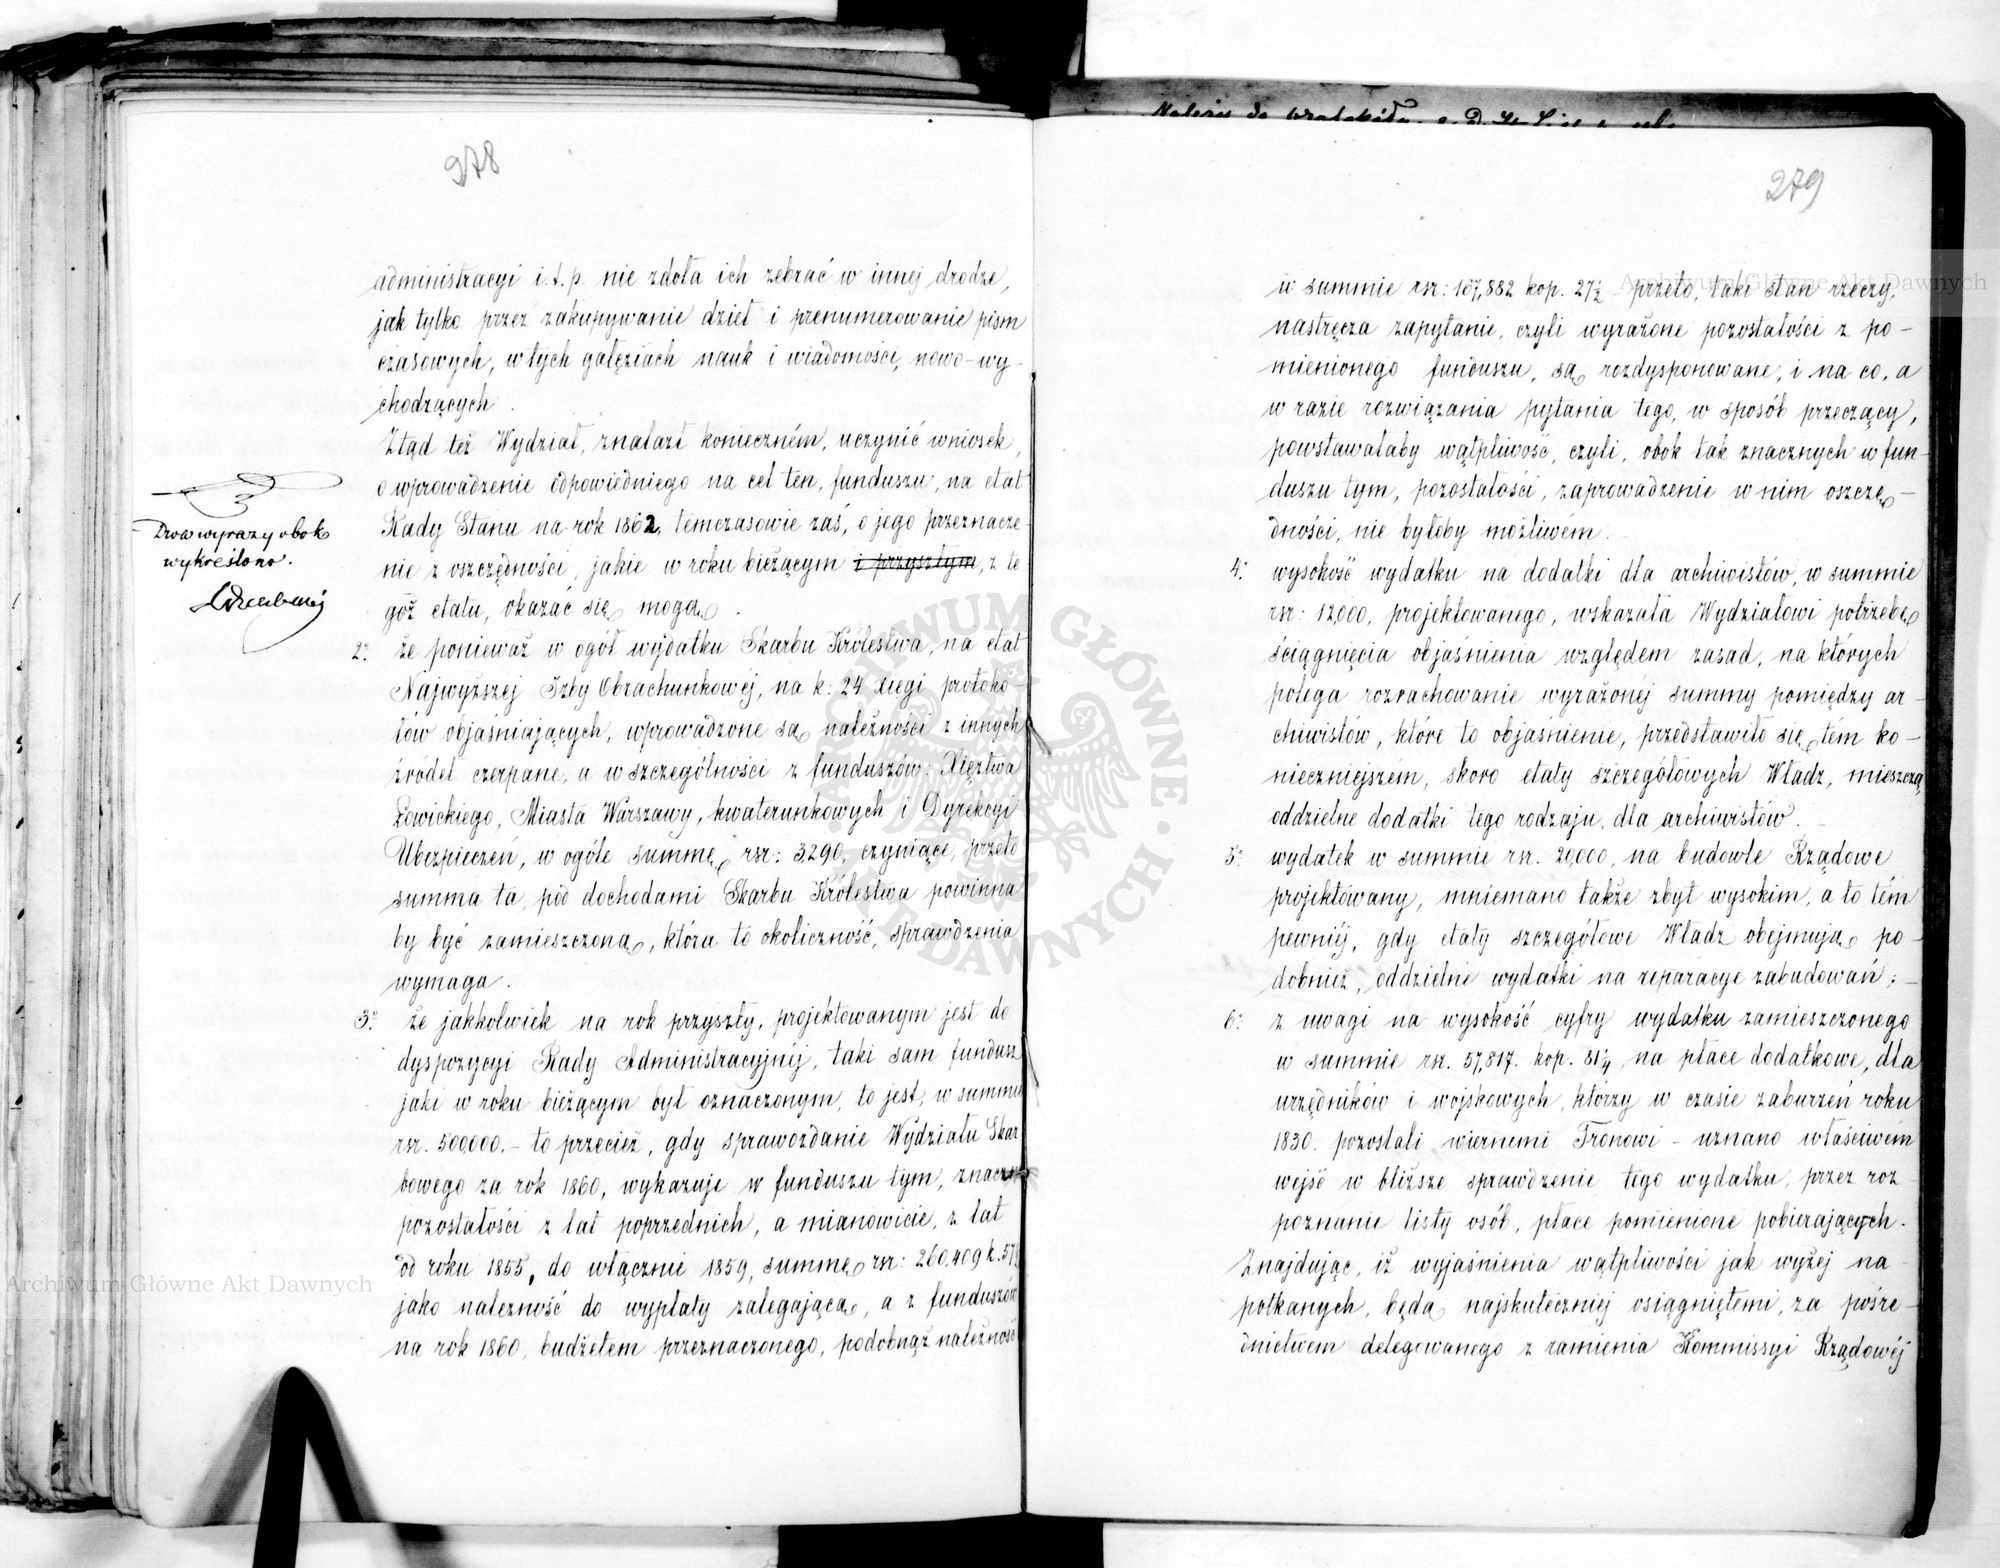 978
administracyi i.t.p. nie zdoła ich zebrać w innej drodze,
jak tylko przez zakupywanie dzieł i prenumerowanie pism
czasowych, w tych gałęziach nauk i wiadomości, nowo-wy-
chodzących.
Ztąd też Wydział, znalazł konieczném, uczynić wniosek,
o wprowadzenie odpowiedniego na cel ten, funduszu, na etat
Rady Stanu na rok 1862, temczasowie zaś, o jego przeznacze-
nie z oszczędności, jakie w roku bieżącym i przyszłym, z te
goż etatu, okazać się mogą.
Dwa wyrazy obok
wykreślono.
2º że ponieważ w ogół wydatku Skarbu Królestwa, na etat
Najwyższej Izby Obrachunkowéj, na k: 24 xięgi protokó-
łów objaśniających, wprowadzone są należności z innych
źródeł czerpane, a w szczególności z funduszów: Xięztwa
Łowickiego, Miasta Warszawy, kwaterunkowych i Dyrekcyi
Ubezpieczeń, w ogóle summę rsr: 3,290, czyniące, przeto
summa ta, pod dochodami Skarbu Królestwa powinna
by być zamieszczoną, która to okoliczność, sprawdzenia
wymaga.
3º że jakkolwiek na rok przyszły, projektowanym jest do
dyspozycyi Rady Administracyjnéj, taki sam fundusz
jaki w roku bieżącym był oznaczonym, to jest, w summie
rsr. 500,000.- to przecież, gdy sprawozdanie Wydziału Skar
bowego za rok 1860, wykazuje w funduszu tym, znaczne
pozostałości z lat poprzednich, a mianowicie, z lat
od roku 1855, do włącznie 1859, summę rsr: 260,409 k. 57½
jako należność do wypłaty zalegającą, a z funduszów
na rok 1860, budżetem przeznaczonego, podobnąż należność
279
w summie rsr: 167,882 kop. 27½ przeto, taki stan rzeczy,
nastręcza zapytanie, czyli wyrażone pozostałości z po-
mienionego funduszu, są rozdysponowane, i na co, a
w razie rozwiązania pytania tego, w sposób przeczący,
powstawałaby wątpliwość, czyli, obok tak znacznych w fun-
duszu tym, pozostałości, zaprowadzenie w nim oszczę-
dności, nie byłoby możliwém.
4º wysokość wydatku na dodatki dla archiwistów, w summie
rsr: 12,000, projektowanego, wskazała Wydziałowi potrzebę
ściągnięcia objaśnienia względem zasad, na których
polega rozrachowanie wyrażonéj summy pomiędzy ar-
chiwistów, które to objaśnienie, przedstawiło się tém ko-
nieczniejszém, skoro etaty szczegółowych Władz, mieszczą
oddzielne dodatki tego rodzaju, dla archiwistów.
5º wydatek w summie rsr. 20,000, na budowle Rządowe
projektowany, mniemano także zbyt wysokim, a to tém
pewniéj, gdy etaty szczegółowe Władz obejmują po-
dobnież, oddzielne wydatki na reparacye zabudowań;
6º z uwagi na wysokość cyfry wydatku zamieszczonego
w summie rsr. 57,817. kop. 81¼, na płace dodatkowe, dla
urzędników i wojskowych, którzy w czasie zaburzeń roku
1830. pozostali wiernemi Tronowi - uznano właściwém
wejść w bliższe sprawdzenie tego wydatku, przez roz-
poznanie listy osób, płace pomienione pobierających.
Znajdując, iż wyjaśnienia wątpliwości jak wyżej na-
potkanych, będą najskuteczniej osiągniętemi, za pośre-
dnictwem delegowanego z ramienia Kommissyi Rządowéj
Archiwum Główne Akt Dawnych
Archiwum Główne Akt Dawnych
ARCHIWUM GŁÓWNE AKT DAWNYCH